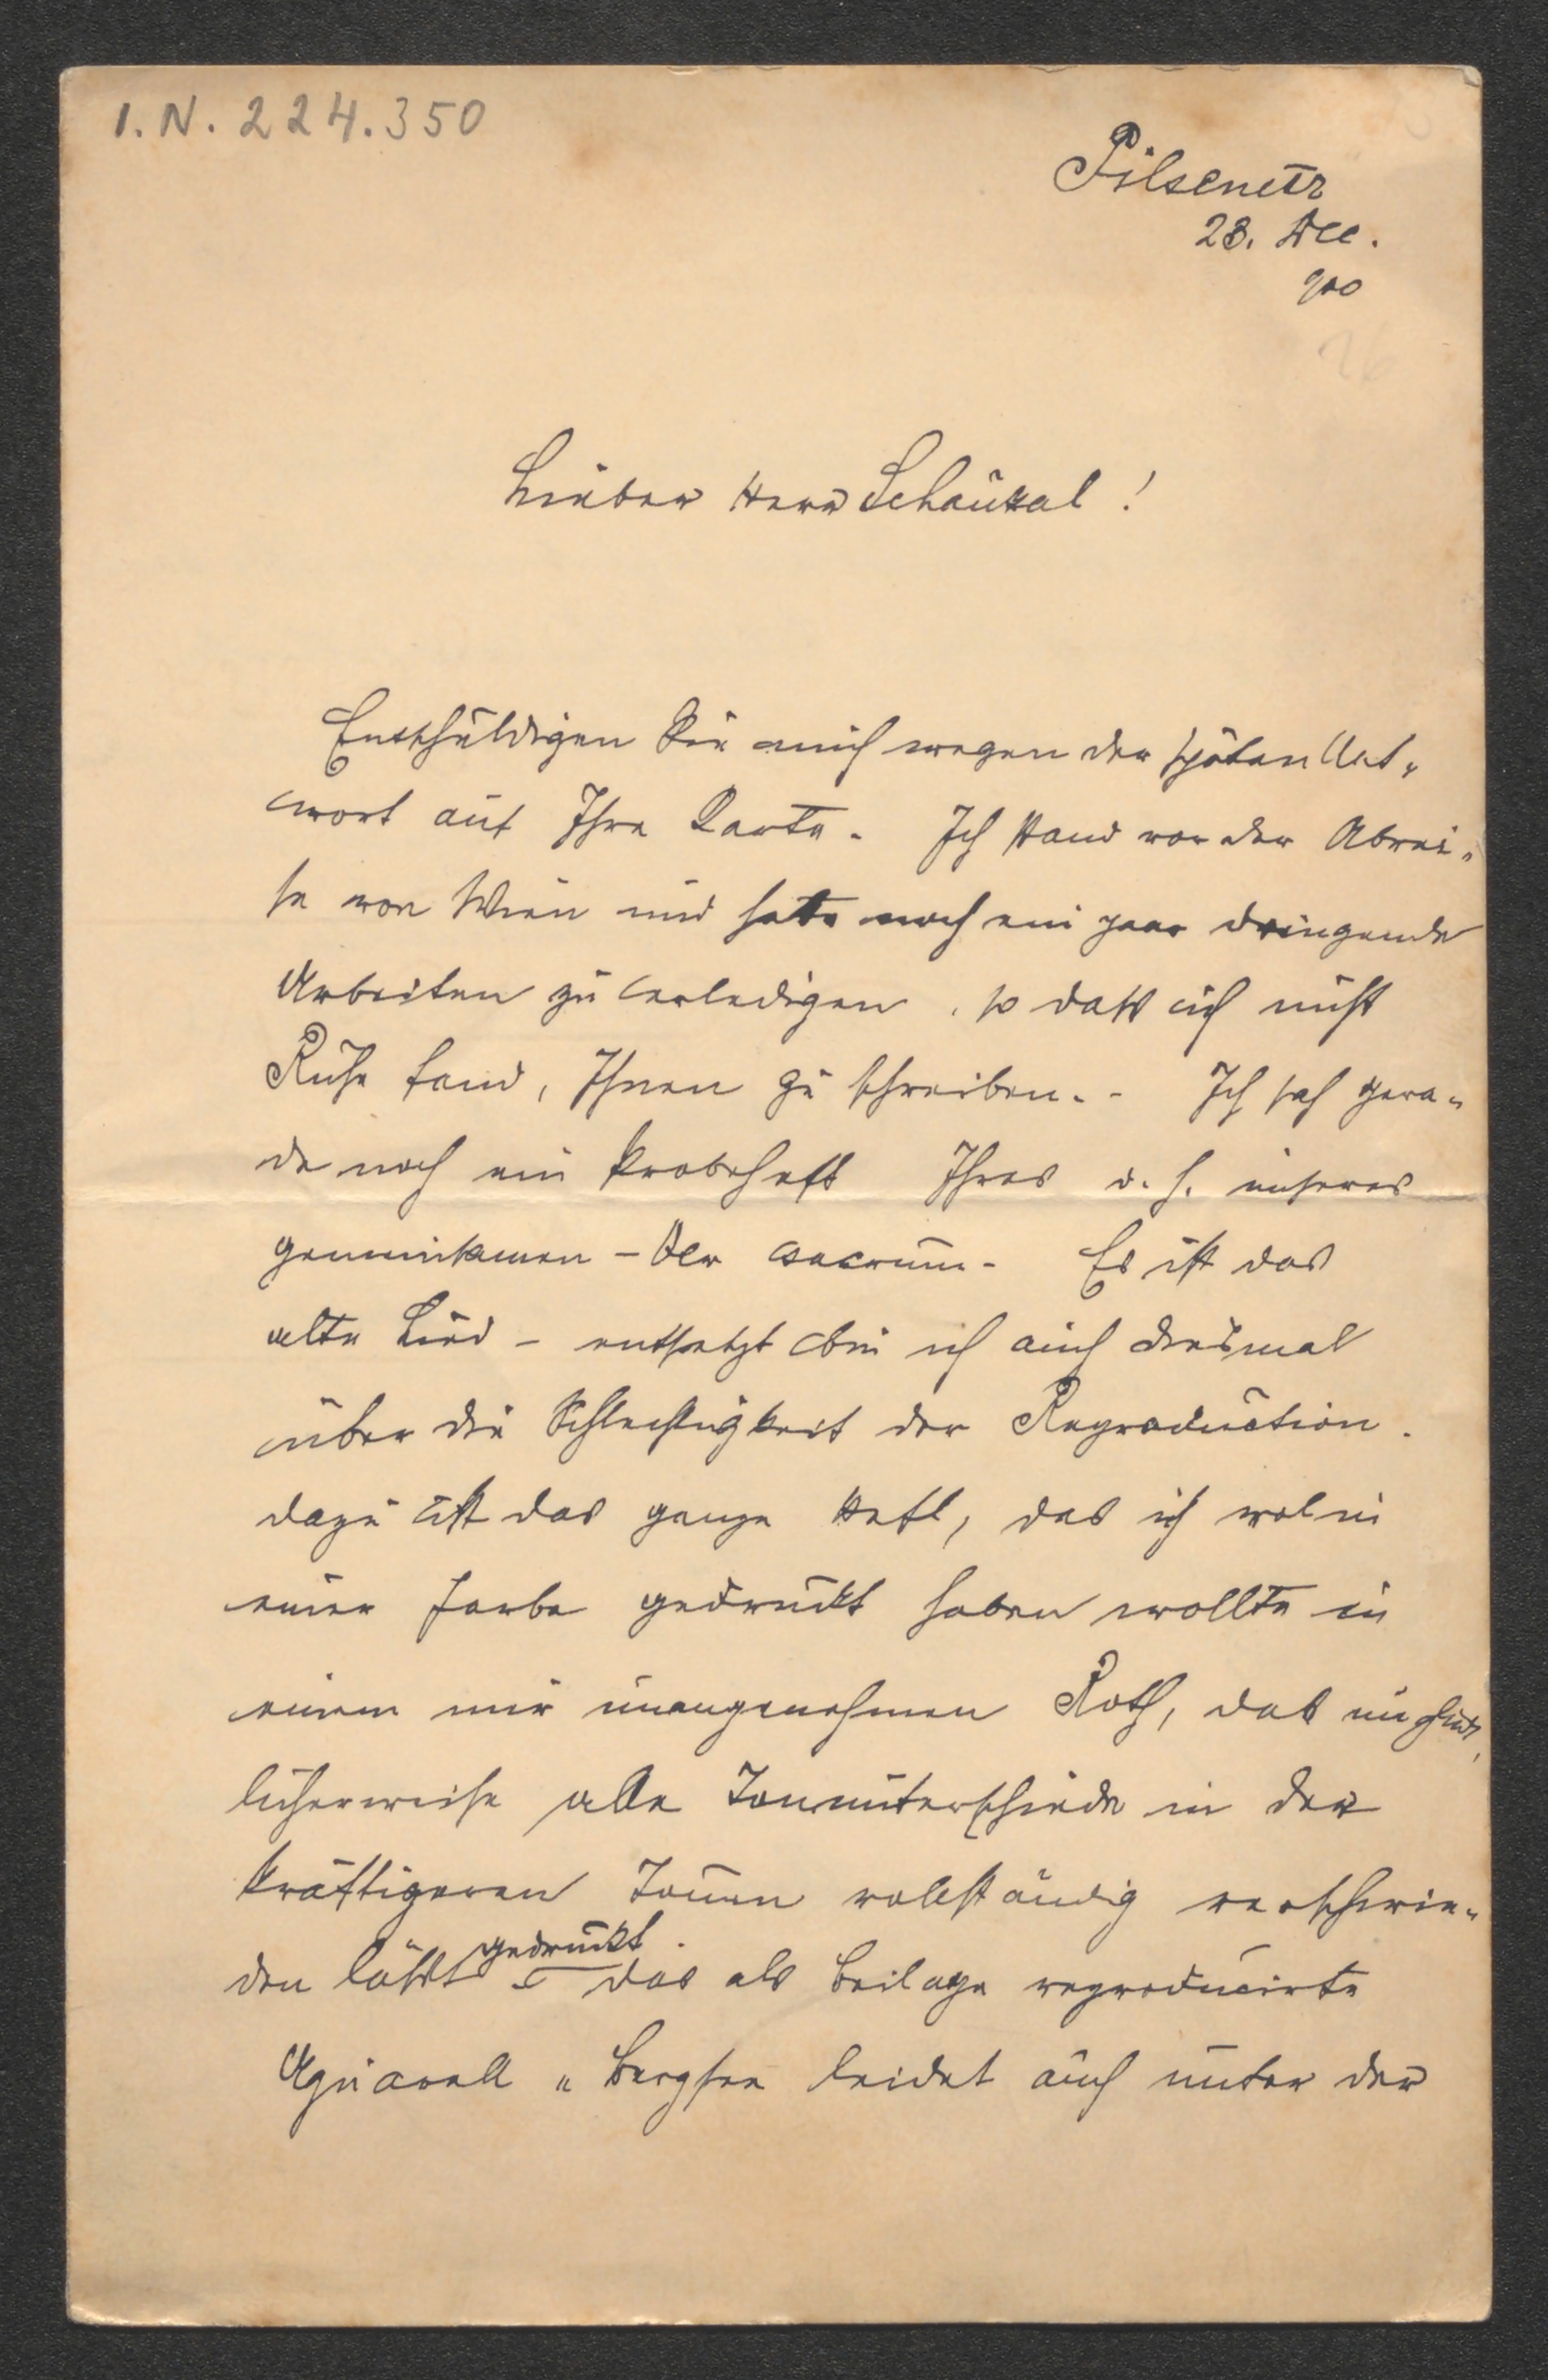 I.N. 224.350
Pilsenetz
23. Dec.
900
Lieber Herr Schaukal!
Entschuldigen Sie mich wegen der späten Ant-
wort auf Ihre Karte. Ich stand vor der Abrei-
se von Wien und hatte noch ein paar dringende
Arbeiten zu erledigen, so dass ich nicht
Ruhe fand, Ihnen zu schreiben. - Ich sah gera-
de noch ein Probeheft Ihres d. h. unseres
gemeinsamen - Ver sacrum - Es ist das
alte Lied - entsetzt bin ich auch diesmal
über die Schlechtigkeit der Reproduction.
dazu ist das ganze Heft, das ich wol in
einer Farbe gedruckt haben wollte in
einem mir unangenehmen Roth, das unglück-
licherweise alle Tonunterschiede in den
kräftigeren Tönen vollständig verschwin-
den lässt gedruckt.
das als Beilage reproducirte
Aquarell „ Bergsee leidet auch unter der